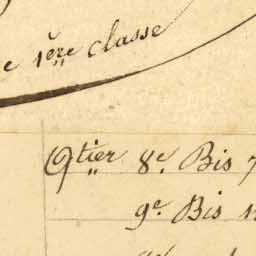 e 1ère classe
Qtier 8e. Bis
9e. Bis